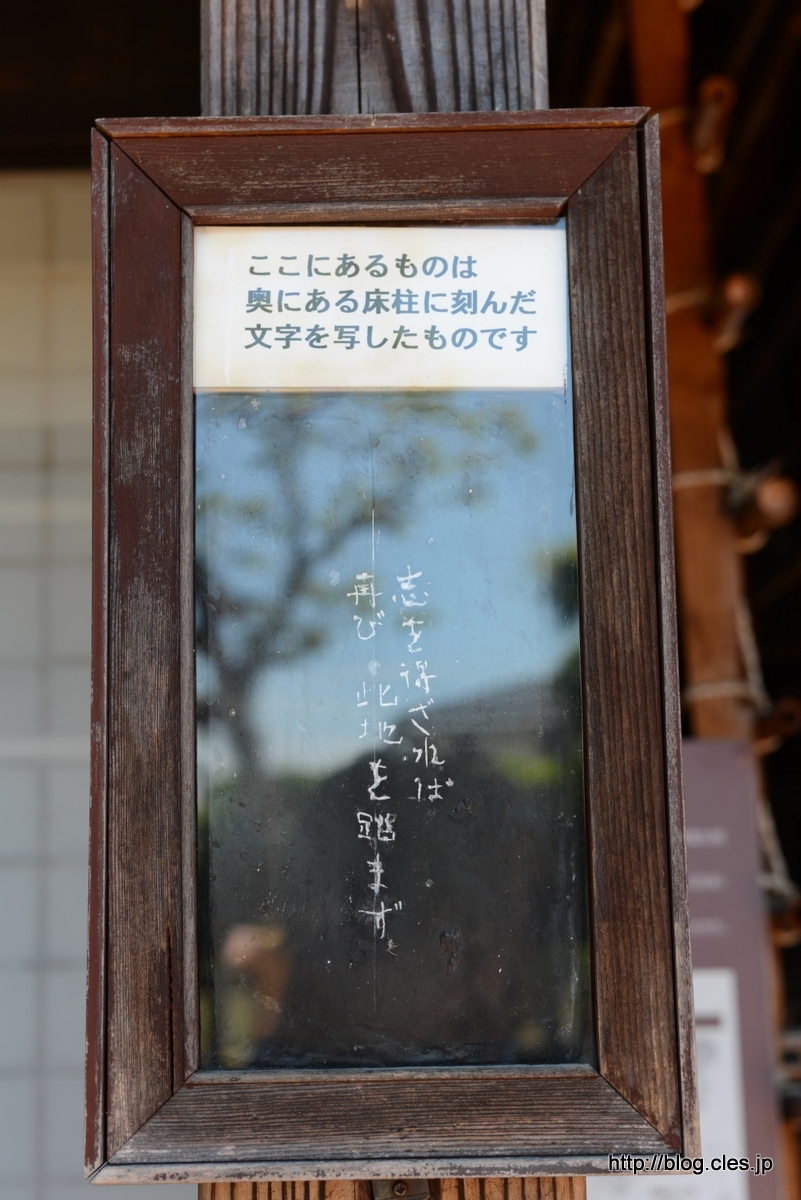 ここにあるものは
奥にある床柱に刻んだ
文字を写したものです
志を得ざれば
再び此地を踏まず
http://blog.cles.jp